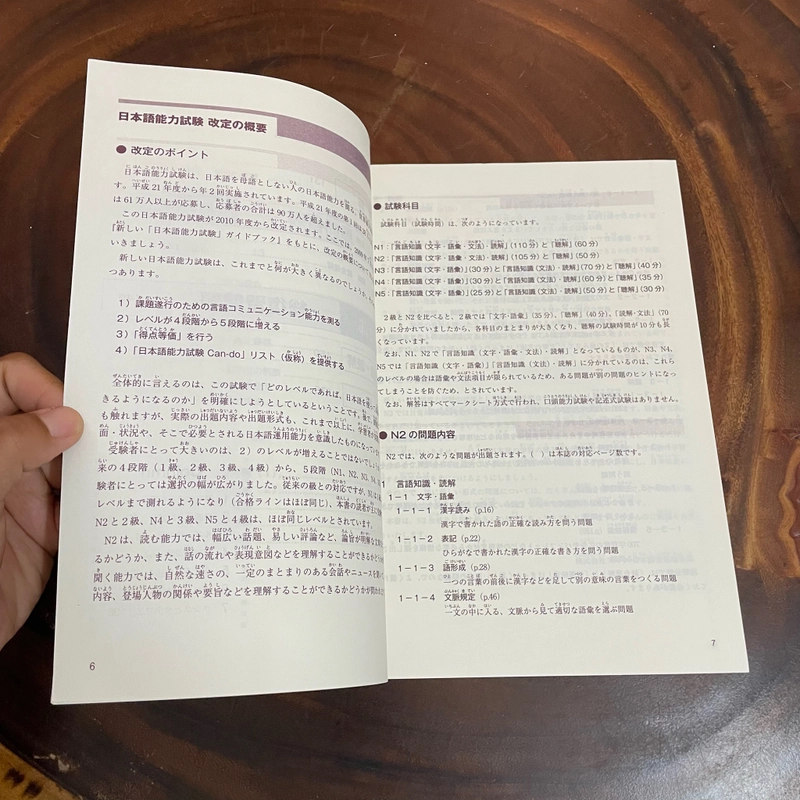 日本語能力試験 改定の概要
● 改定のポイント
日本語能力試験は、日本語を母語としない人の日本語能力を測る、
す。平成21年度から年2回実施されています。平成21年度の第1回は
は61万人以上が応募し、応募者の合計は90万人を超えました。
この日本語能力試験が2010年度から改定されます。ここでは、
『新しい「日本語能力試験」ガイドブック』をもとに、改定の概要につい
いきましょう。
新しい日本語能力試験は、これまでと何が大きく異なるのでしょうか。
つあります。
1)課題遂行のための言語コミュニケーション能力を測る
2)レベルが4段階から5段階に増える
3)「得点等価」を行う
4)「日本語能力試験 Can-do」リスト(仮称)を提供する
全体的に言えるのは、この試験で「どのレベルであれば、日本語を使っ
きるようになるのか」を明確にしようとしているということです。
も触れますが、実際の出題内容や出題形式も、これまで以上に、学習者の
面・状況や、そこで必要とされる日本語運用能力を意識したものになってい
受験者にとって大きいのは、2)のレベルが増えることではないでしょ
来の4段階(1級、2級、3級、4級)から、5段階(N1、N2、N3、N4
験者にとっては選択の幅が広がりました。従来の級との対応ですが、N1は
レベルまで測れるようになり(合格ラインはほぼ同じ)、本書の読者が
N2と2級、N4と3級、N5と4級は、ほぼ同じレベルとされています。
N2は、読む能力では、幅広い話題、易しい評論など、論旨が明解な文
るかどうか、また、話の流れや表現意図などを理解することができるか
聞く能力では、自然な速さの、一定のまとまりのある会話やニュースを
内容、登場人物の関係や要旨などを理解することができるかどうかが問
6
● 試験科目
試験科目(試験時間)は、次のようになっています。
N1:「言語知識(文字・語彙・文法)・読解」(110分)と「聴解」(60分)
N2:「言語知識(文字・語彙・文法)・読解」(105分)と「聴解」(50分)
N3:「言語知識(文字・語彙)」(30分)と「言語知識(文法)・読解」(70分)と「聴解」(40分)
N4:「言語知識(文字・語彙)」(30分)と「言語知識(文法)・読解」(60分)と「聴解」(35分)
N5:「言語知識(文字・語彙)」(25分)と「言語知識(文法)・読解」(50分)と「聴解」(30分)
2級とN2を比べると、2級では「文字・語彙」(35分)、「聴解」(40分)、「読解・文法」(70
分)に分かれていましたから、各科目のまとまりが大きくなり、聴解の試験時間が10分も長
くなっています。
なお、N1、N2で「言語知識(文字・語彙・文法)・読解」となっているものが、N3、N4、
N5では「言語知識(文字・語彙)」「言語知識(文法)・読解」に分かれているのは、これら
のレベルの場合は語彙や文法項目が限られているため、ある問題が別の問題のヒントになっ
てしまうことを防ぐため、とされています。
なお、解答はすべてマークシート方式で行われ、口頭能力試験や記述式試験はありません。
● N2の問題内容
N2では、次のような問題が出題されます。( )は本誌の対応ページ数です。
1 言語知識・読解
1−1 文字・語彙
1−1−1 漢字読み(p.16)
漢字で書かれた語の正確な読み方を問う問題
1−1−2 表記(p.22)
ひらがなで書かれた漢字の正確な書き方を問う問題
1−1−3 語形成(p.28)
一つの言葉の前後に漢字などを足して別の意味の言葉をつくる問題
1−1−4 文脈規定(p.46)
一文の中に入る、文脈から見て適切な語彙を選ぶ問題
7